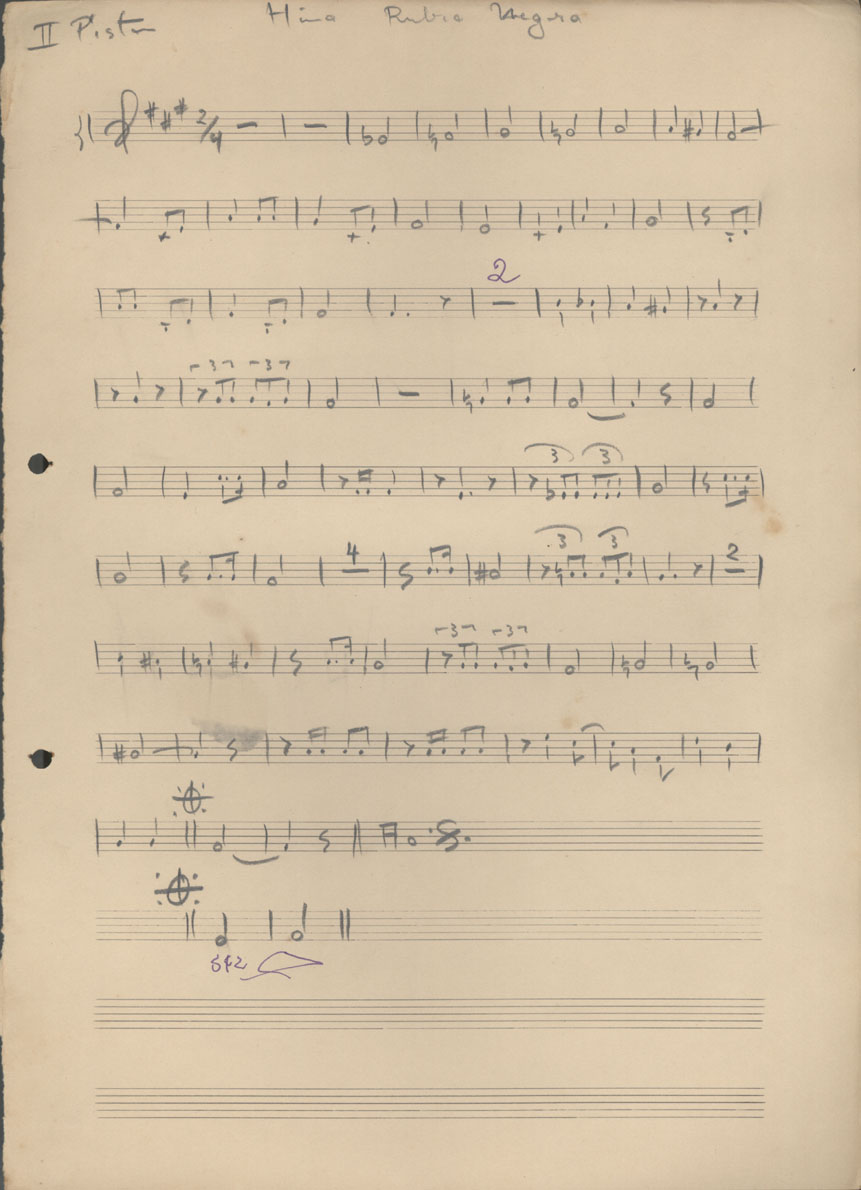 II Piston
Hino Rubro Negro
2/4
2
3 3
3 3
4 3 3 2
3 3